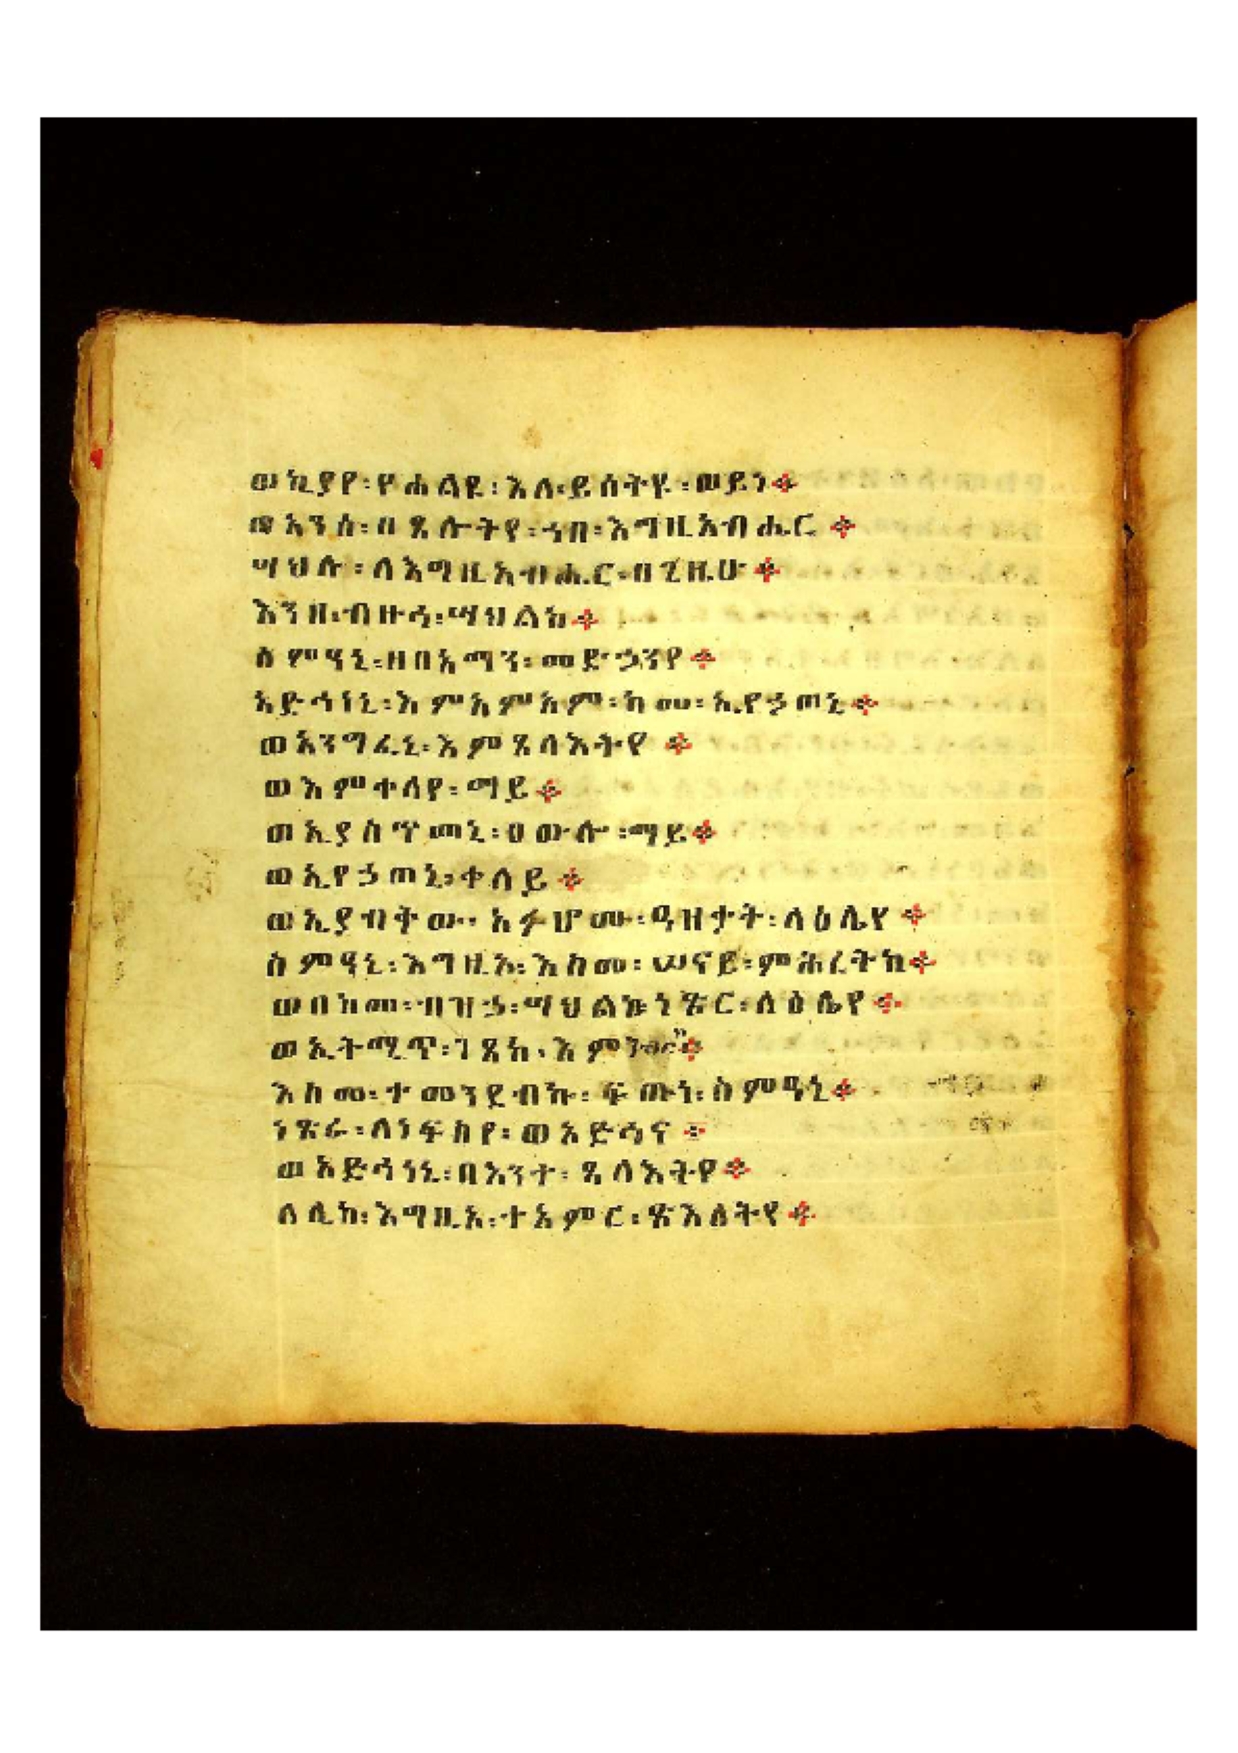 ወኪያየ፡የሐልዩ፡እለ፡ይሰትዩ፡ወይነ፨
ወአንሰ፡በጸሎትየ፡ኀበ፡እግዚአብሔር፨
ሣህሉ፡ለእግዚአብሔር፡በጊዜሁ፨
እንዘ፡ብዙኅ፡ሣህልከ፨
ስምዓኒ፡ዘበአማን፡መድኃንየ፨
አድኅነኒ፡እምአምአም፡ከመ፡ኢየኃጠኒ፨
ወአንግፈኒ፡እምጸላእትየ፨
ወእምቀላየ፡ማይ፨
ወኢያስጥመኒ፡ዐውሎ፡ማይ፨
ወኢየኃጠኒ፡ቀላይ፨
ወኢያብትው፡አፉሆሙ፡ዓዘቃት፡ላዕሌየ፨
ስምዓኒ፡እግዚኦ፡እስመ፡ሠናይ፡ምሕረትከ፨
ወበከመ፡ብዝኃ፡ሣህልከ፡ነጽር፡ላዕሌየ፨
ወኢትሚጥ፡ገጸከ፡እምን
እስመ፡ተመንደብኩ፡ፍጡነ፡ስምዓኒ፨
ነጽራ፡ለነፍስየ፡ወአድኅና፨
ወአድኅነኒ፡በእንተ፡ጸላእትየ፨
ለሊከ፡እግዚኦ፡ተአምር፡ጽእለትየ፨